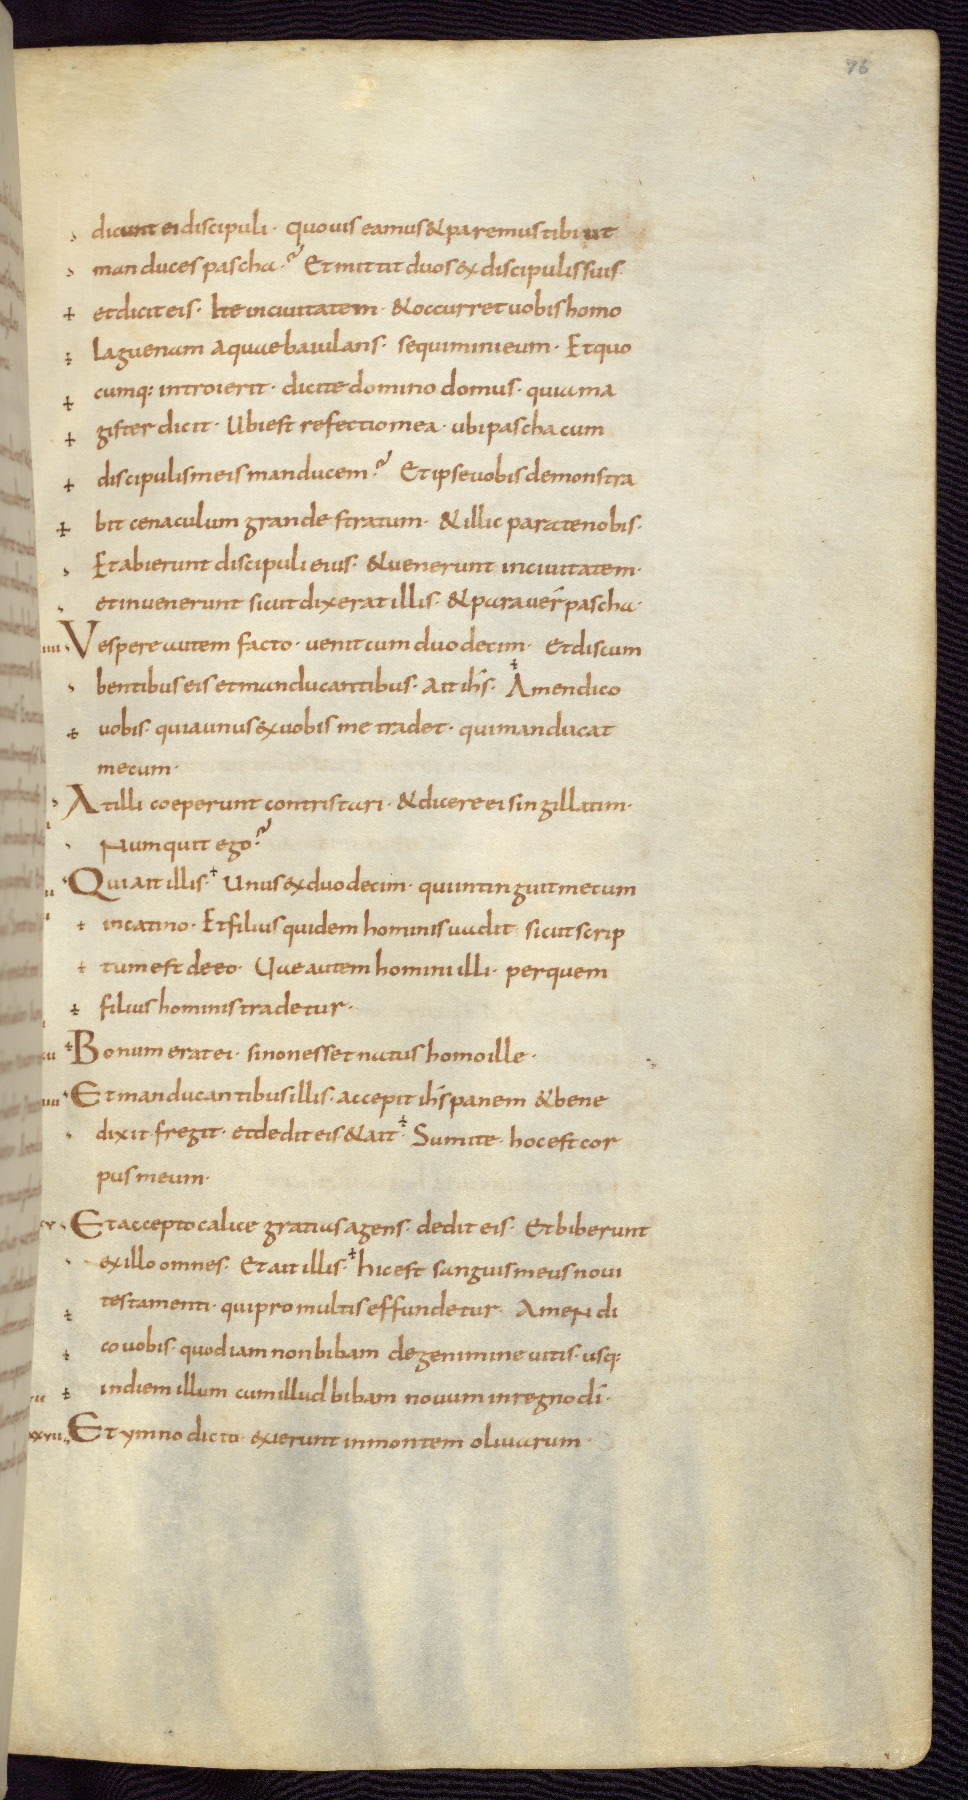 76
dicunt ei discipuli· quo uis eamus & paremus tibi ut
manduces pascha·? Et mittit duos ex discipulis suis·
et dicit eis· Ite in ciuitatem· & occurret uobis homo
laguenam aquae baiulans· sequimini eum· Et quo
cumq: introierit· dicite domino domus· quia ma
gister dicit· Ubi est refectio mea· ubi pascha cum
discipulis meis manducem? Et ipse uobis demonstra
bit cenaculum grande stratum· & illic parate nobis·
Et abierunt discipuli eius· & uenerunt in ciuitatem·
et inuenerunt sicut dixerat illis· & parauer̄ pascha·
Vespere autem facto· uenit cum duodecim· Et discum
bentibus eis et manducantibus· Ait ih̄s· Amen dico
uobis· quia unus ex uobis me tradet· qui manducat
mecum·
At illi coeperunt contristari· & dicere ei singillatim·
Numquit ego?
Qui ait illis· Unus ex duodecim· qui intinguit mecum
in catino· Et filius quidem hominis uadit sicut scrip
tum est de eo· Uae autem homini illi· per quem
filius hominis tradetur·
Bonum erat ei· si non esset natus homo ille·
Et manducantibus illis· accepit ih̄s panem & bene
dixit fregit· et dedit eis & ait· Sumite· hoc est cor
pus meum·
Et accepto calice gratias agens· dedit eis· Et biberunt
ex illo omnes· Et ait illis· hic est sanguis meus noui
testamenti· qui pro multis effundetur· Amen di
co uobis· quod iam non bibam de genimine uitis· usq:
in diem illum cum illud bibam nouum in regno dī·
Et ymno dicto· exierunt in montem oliuarum·